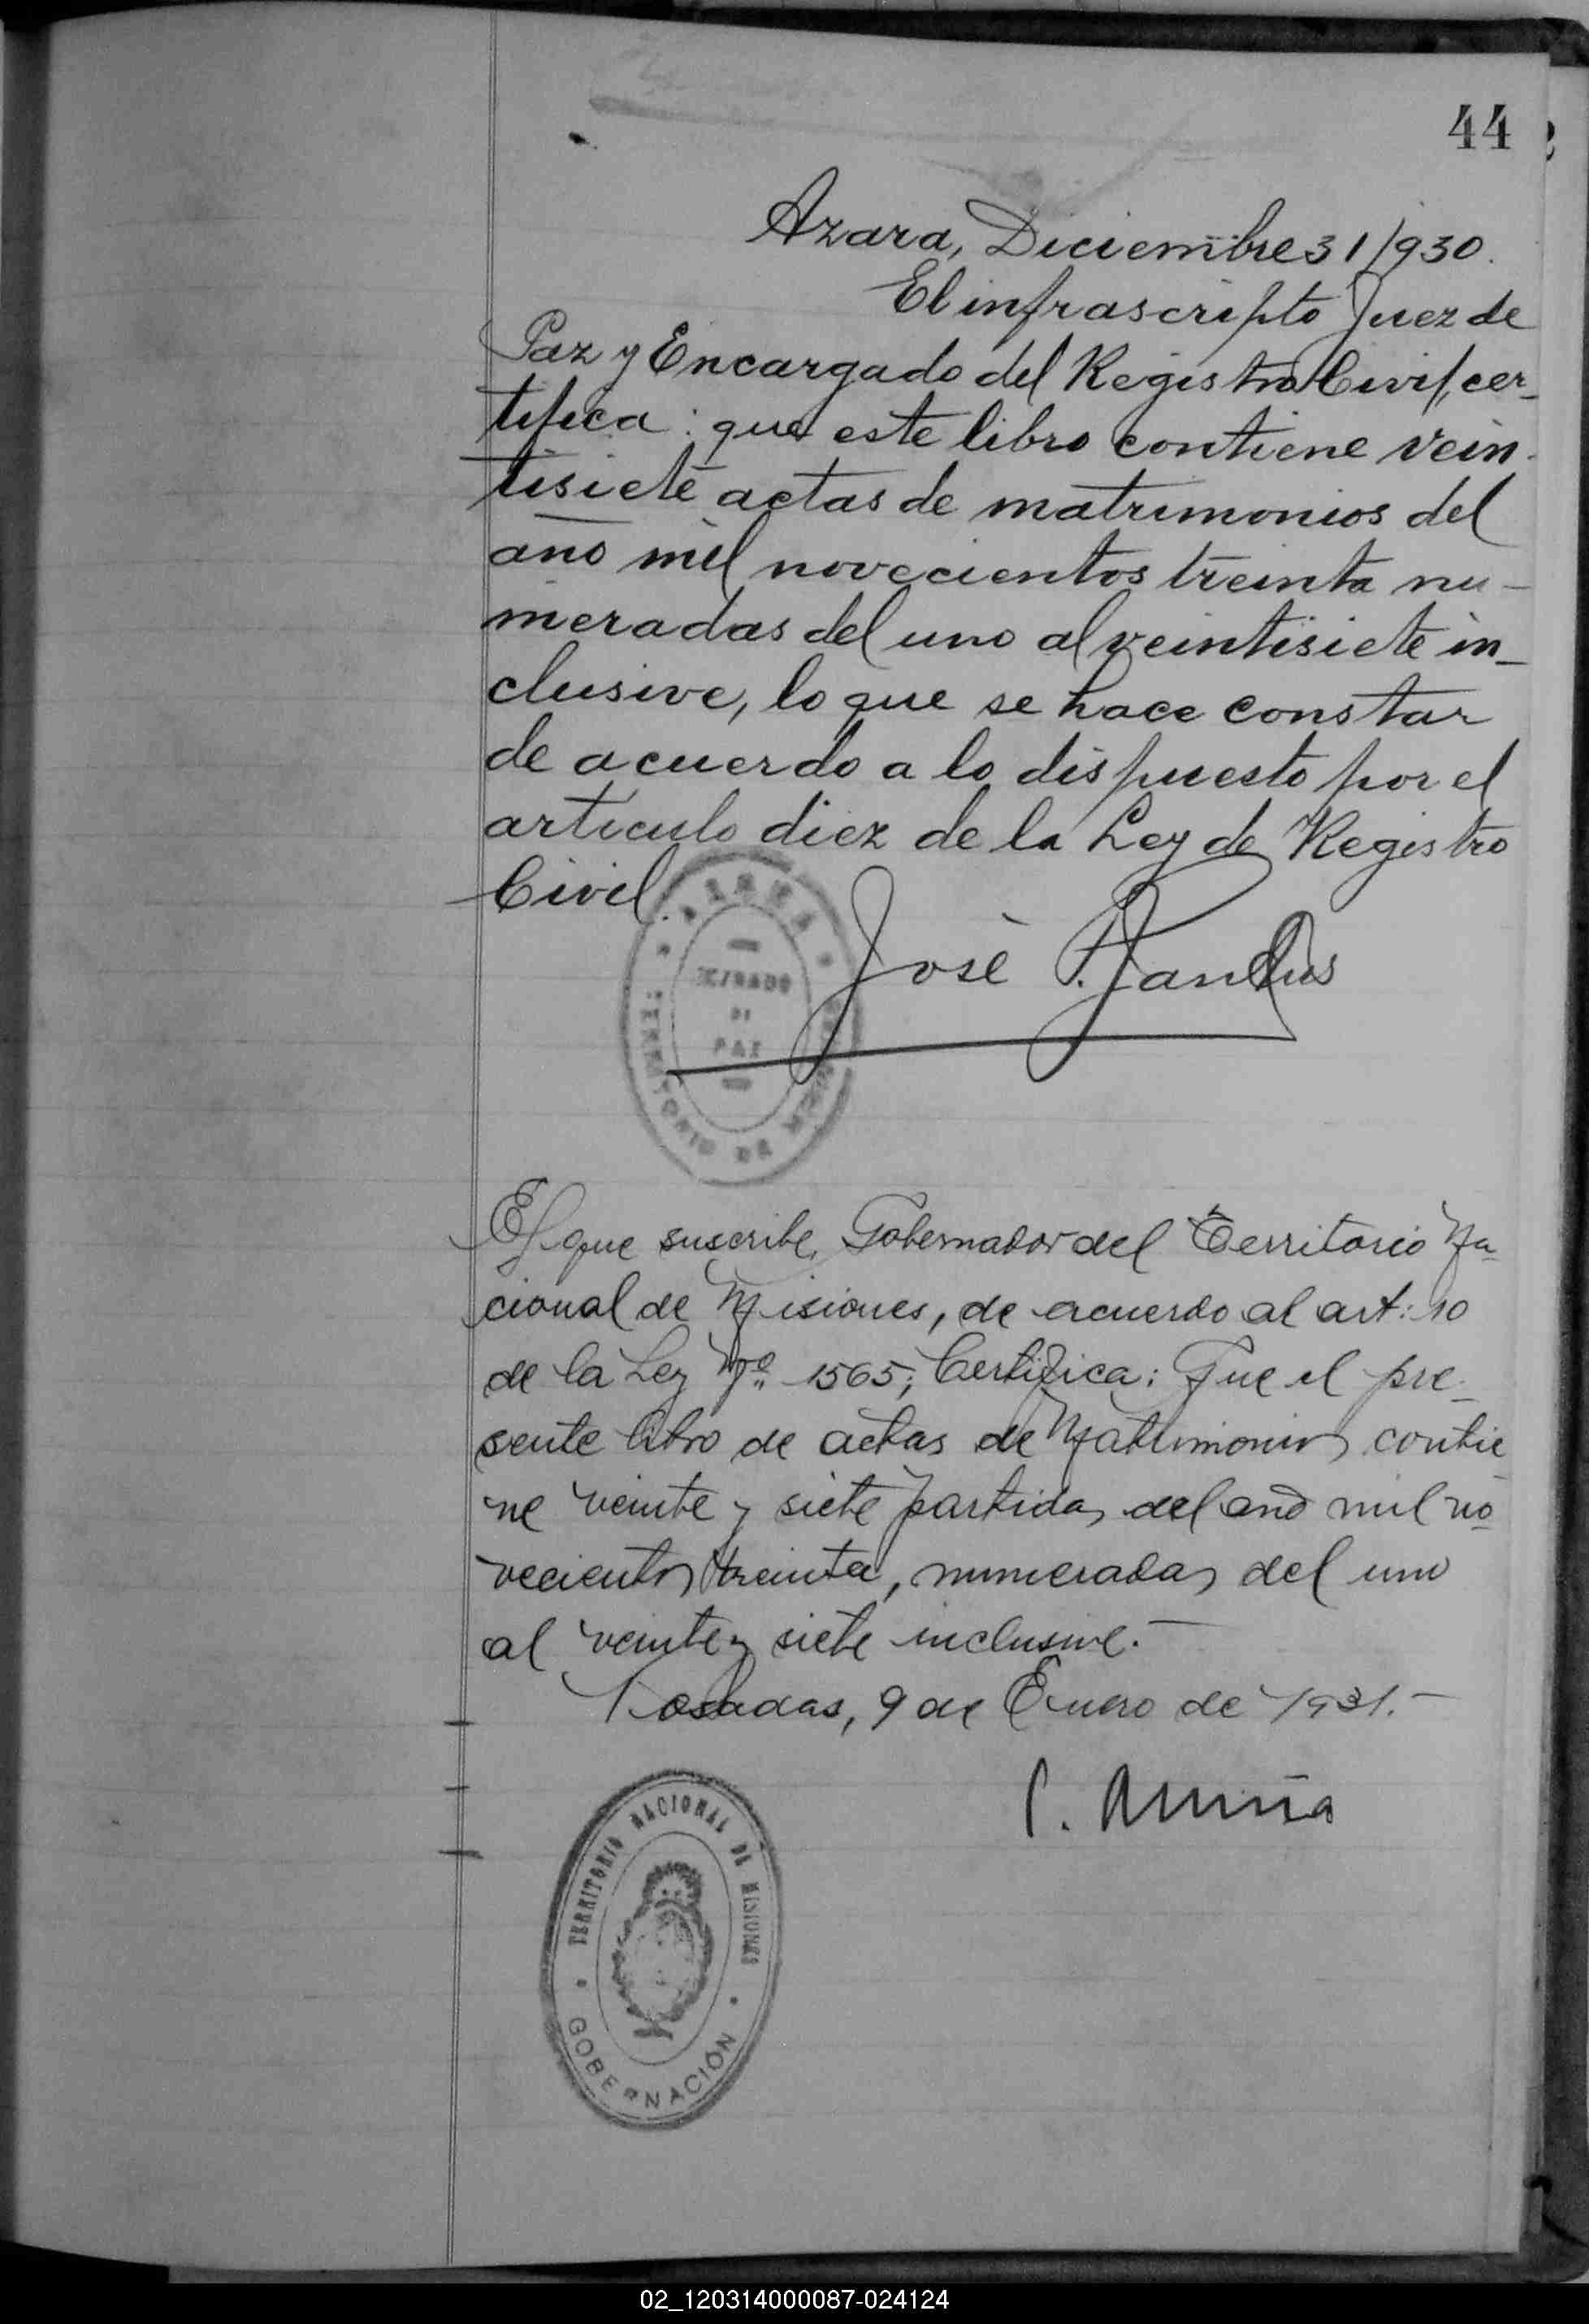 44
Azara, Diciembre 31/930.
El infrascripto Juez de
Paz y Encargado del Registro Civil, cer-
tifica: que este libro contiene vein-
tisiete actas de matrimonios del
año mil novecientos treinta nu-
meradas del uno al veintisiete in-
clusive, lo que se hace constar
de acuerdo a lo dispuesto por el
artículo diez de la Ley de Registro
Civil.
AZARA
JUZGADO
DE
PAZ
TERRITORIO DE
José P.
El que suscribe, Gobernador del Territorio Na-
cional de Misiones, de acuerdo al art: 10
de la Ley Nº 1565; Certifica: Que el pre-
sente libro de actas de Matrimonios contie
ne veinte y siete partidas del año mil no-
vecientos treinta, numeradas del uno
al veinte y siete inclusive.-
Posadas, 9 de Enero de 1931.-
TERRITORIO NACIONAL DE MISIONES
GOBERNACIÓN
02_120314000087-024124